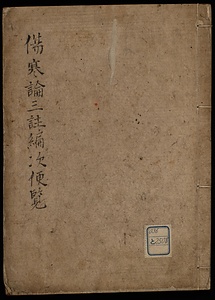 傷寒論三註編次便覧